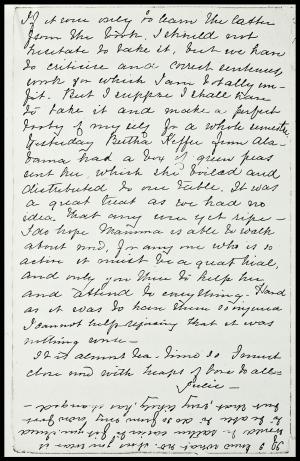 If it were only to learn the latter
from the book, I should not
hesitate to take it, but we have
to criticise and correct sentences
work for which I am totally un-
fit. But I suppose I shall have
to take it and make a perfect
booby of myself for a whole semester
Yesterday Bertha Keffer from Ala-
bama had a box of green peas
sent her, which she boiled and
distributed to our table. It was
a great treat as we had no
idea that any were yet ripe –
I do hope Mamma is able to walk
about now, for any one who is so
active it must be a great trial,
and only you there to help her
and attend to everything. Hard
as it was to have them so injured
I cannot help rejoicing that it was
nothing worse –
It is almost tea-time so I must
close now with heaps of love to all –
Lucie –